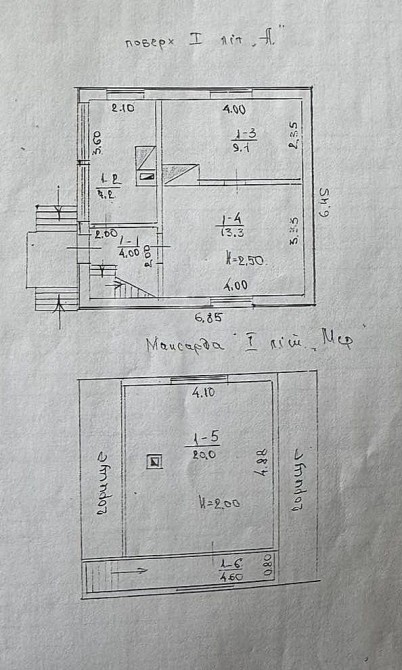 поверх I літ „А"
2.10
4.00
3.60
1-3
9.1
2.35
1-2
7.2
6.45
1-4
13.3
3.35
2.00
1-1
4.00
2.00
H=2.50
4.00
6.85
Мансарда I літ „Мср"
4.10
1-5
20.0
4.88
горище
горище
H=2.00
1-6
4.60
0.80